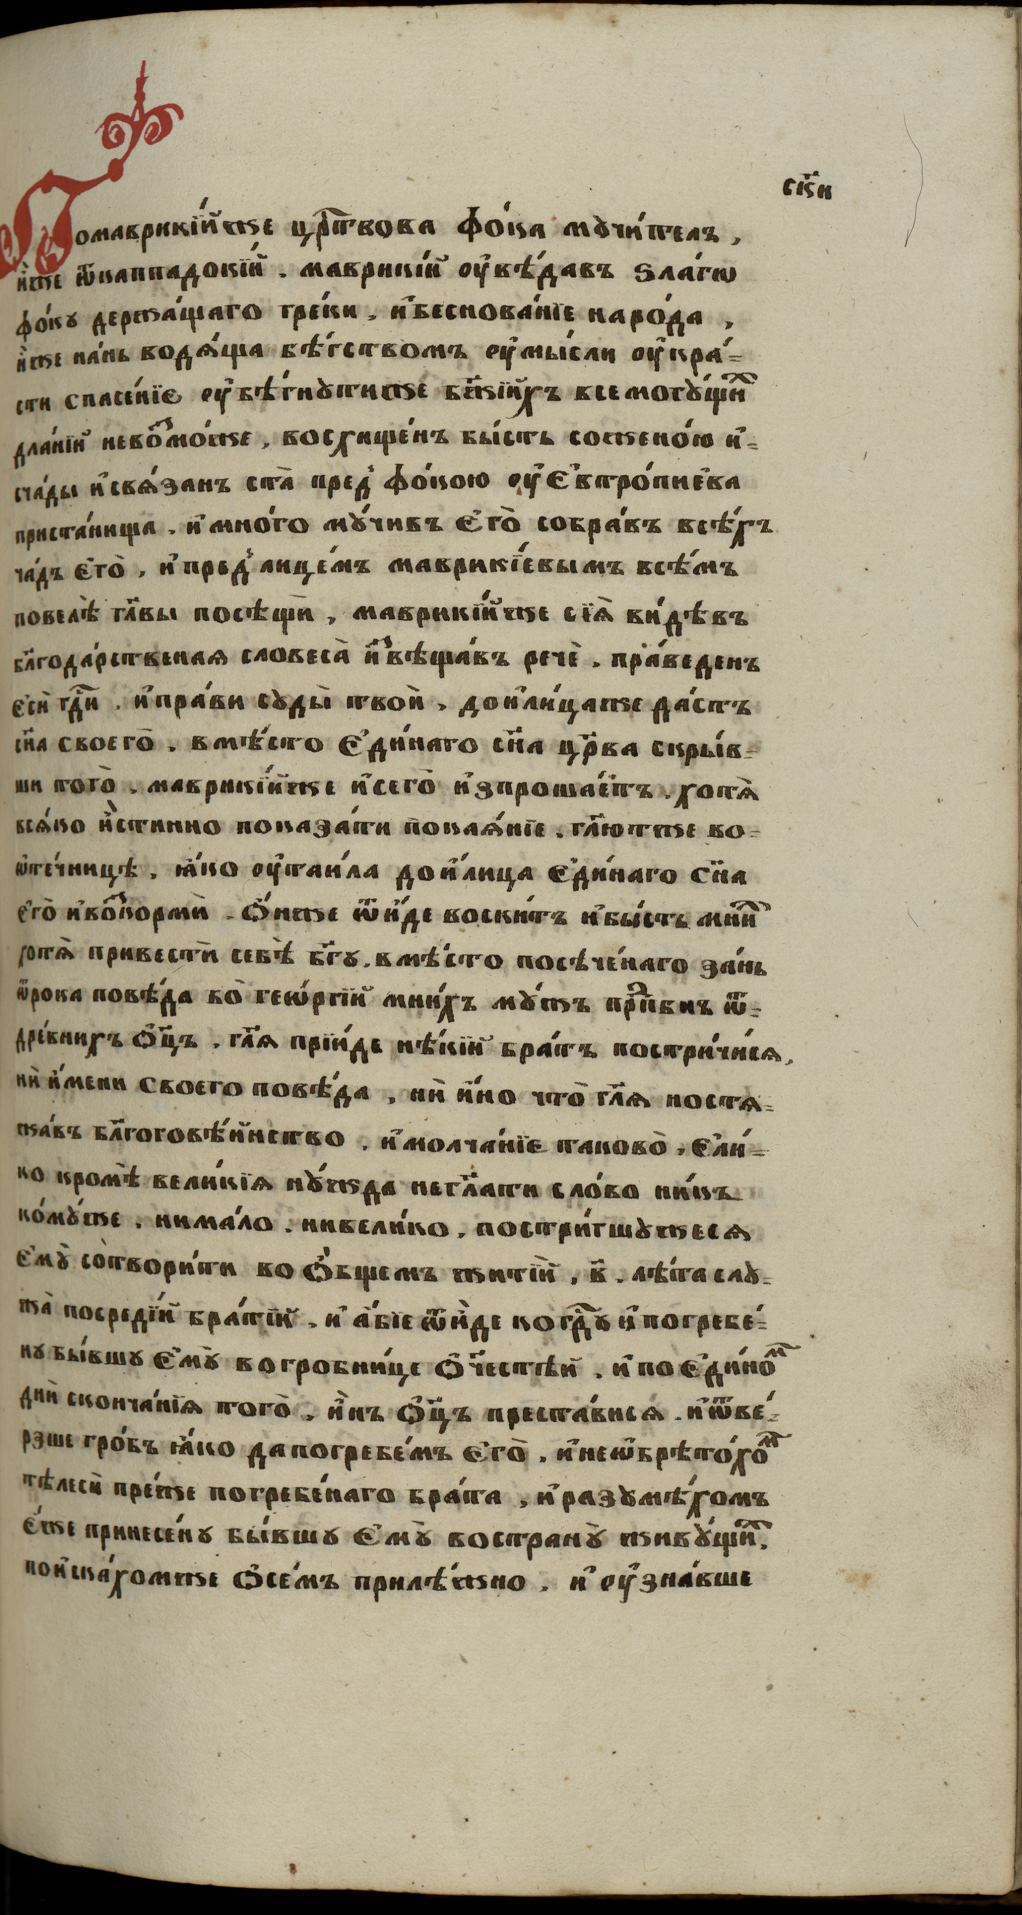 ск҃и
Помаврикі́йже црⷭ҇твова фо́ка мꙋчи́тель,
и҆́же ѿкаппадокі́й. маврикі́й ᲂу҆вѣ́давъ ѕла́гѡ
фо́кꙋ держа́щаго гре́ки, и҆беснова́нїе наро́да,
и҆́же на́нь водѧ́ща бѣ́гствомъ ᲂу҆мы́сли ᲂу҆кра́-
сти спасе́нїе ᲂу҆бѣ́гнꙋтиже бж҃їихъ всемогꙋ́щиⷯ
дла́нїй невоⷥмо́же, восхище́нъ бы́сть сожено́ю и҆-
ча́ды и҆свѧ́занъ ста̀ преⷣ фо́кою ᲂу҆ є҆втро́пиева
приста́нища. и҆мно́го мꙋ́чивъ є҆го̀ собра́въ всѣ́хъ
ча́дъ є҆го̀, и҆преⷣ лице́мъ маврикі́евымъ всѣ́мъ
повелѣ̀ гл҃вы посѣщѝ, маврикі́йже сїѧ̀ ви́дѣвъ
бл҃года́рственая словеса̀ и҆ⷥвѣща́въ речѐ. пра́веденъ
є҆сѝ гдⷭ҇и. и҆пра́ви сꙋды̀ твоѝ, дои҆ли́цаже да́стъ
сн҃а своего̀. вмѣ́сто є҆ди́наго сн҃а цр҃ва скры́в-
ши того̀. маврикі́йже и҆сего̀ и҆зпроша́етъ. хотѧ̀
всѧ́ко и҆́стинно показа́ти покаѧ́нїе. гл҃ютже во-
ѡте́чницѣ, ꙗ҆́ко ᲂу҆таи́ла дои҆́лица є҆ди́наго сн҃а
є҆го̀ и҆воⷥкормѝ. ѻ҆́ниже ѿи҆́де воски́тъ и҆бы́сть мниⷯ
хотѧ̀ привестѝ себѐ бг҃ꙋ. вмѣ́сто посѣче́наго за́нь
ѿрока повѣ́да во̀ геѡ́ргїй мни́хъ мꙋ́жъ прⷣ҇внъ ѿ-
дре́внихъ ѻ҆ц҃ъ. гл҃ѧ прїи́де нѣ́кїй бра́тъ постри́чисѧ,
нѝ и҆́мени своего повѣ́да, нѝ и҆́но что̀ гл҃ѧ постѧ-
жа́въ бл҃гоговѣ́инство. и҆молча́нїе таково̀, є҆ли́-
ко кромѣ̀ вели́кїѧ нꙋ́жда негл҃ати сло́во никъ
ко́мꙋже. нима́ло. нивели́ко, постри́гшꙋжесѧ
є҆мꙋ̀ сотвори́ти во ѻ҆́бщемъ житїѝ, в҃. лѣ́та слꙋ-
жа̀ посредїѝ бра́тїй. и҆ а́бїе ѿи҆́де когдⷭ҇ꙋ и҆погребе́-
нꙋ бы́вшꙋ є҆мꙋ̀ вогробни́це ѻ҆ч҃естѣ́й. и҆по є҆ди́ноⷨ
днѝ сконча́нїѧ того̀. и҆́нъ ѻ҆ц҃ъ преста́висѧ. и҆ѿве́-
рзше гро́бъ ꙗ҆́ко дапогребе́мъ є҆го̀. и҆неѡбрѣто́хоⷨ
тѣлесѝ пре́же погребе́наго бра́та, и҆разꙋмѣ́хомъ
є҆́же принесе́нꙋ бы́вшꙋ є҆мꙋ̀ востранꙋ̀ живꙋ́щиⷯ.
пои҆ска́хомже ѻ҆се́мъ прилѣ́жно. и҆ ᲂу҆зна́вше